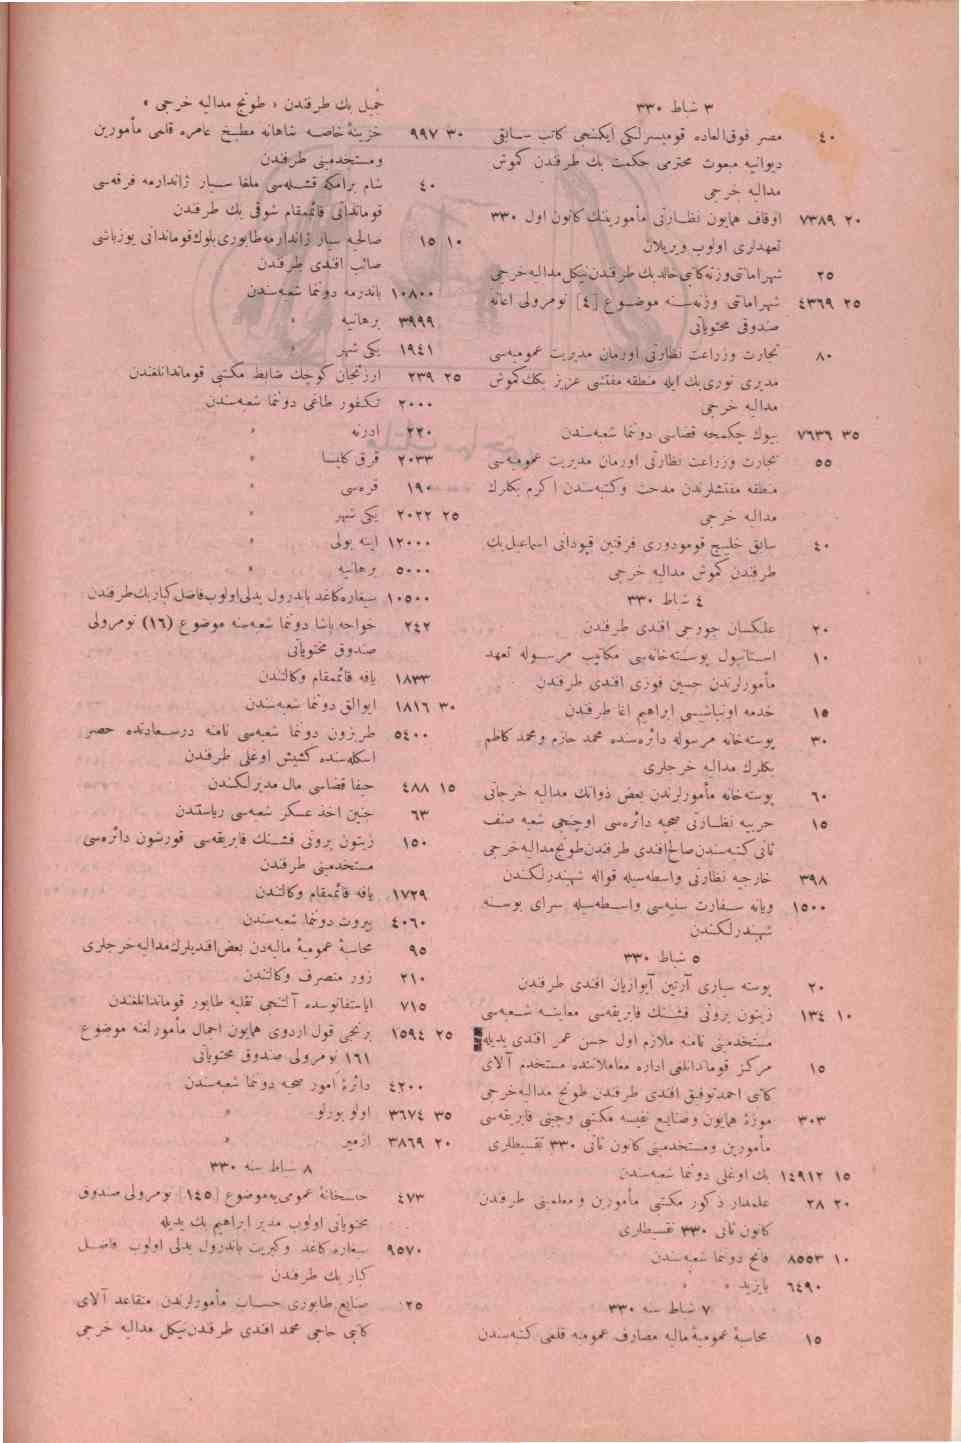 ٣ شباط ٣٣٠
٤٠ مصر فوق‌العاده قومیسرلکی ایکنجی کاتب سابقی
دیوانیه مبعوث محترمی حکمت بك طرفندن کموش
مدالیه خرجی
٢٠ ٧٣٨٩ اوقاف همایون نظارتی مأمورینك کانون اول ٣٣٠
تعهدلری اولوب ویریلان
٢٥ شهرامانتی وزنه‌کاتبی خالد بك طرفندن نیکل مدالیه خرجی
٢٥ ٤٣٦٩ شهرامانتی وزنه‌سنه موضوع [٤] نومرولی اعانه
صندوقی محتویاتی
٨٠ تجارت وزراعت نظارتی اورمان مدیریت عمومیه‌سی
مدیری نوری بك ایله منطقه مفتشی عزیز بکك کموش
مدالیه خرجی
٣٥ ٧٦٣٦ بیوك چکمجه قضاسی دونما شعبه‌سندن
٥٥ تجارت وزراعت نظارتی اورمان مدیریت عمومیه‌سی
منطقه مفتشلرندن مدحت وکتبه‌سندن اکرم بکلرك
مدالیه خرجی
٤٠ سابق خلیج قومودوری فرقتین قپودانی اسماعیل بك
طرفندن کموش مدالیه خرجی
٤ شباط ٣٣٠
٢٠ علکسان جورجی افندی طرفندن
١٠ استانبول پوسته‌خانه‌سی مکاتیب مرسوله تعهد
مأمورلرندن حسین فوزی افندی طرفندن
١٥ خدمه اونباشیسی ابراهیم اغا طرفندن
٣٠ پوسته‌خانه مرسوله دائره‌سنده محمد حازم ومحمد کاظم
بکلرك مدالیه خرجلری
٦٠ پوسته‌خانه مأمورلرندن بعض ذواتك مدالیه خرجاتی
١٥ حربیه نظارتی صحیه دائره‌سی اوچنجی شعبه صنف
ثانی کتبه‌سندن صالح افندی طرفندن طونج مدالیه خرجی
٣٩٨ خارجیه نظارتی واسطه‌سیله قواله شهبندرلکندن
١٥٠٠ ویانه سفارت سنیه‌سی واسطه‌سیله سرای بوسنه
شهبندرلکندن
٥ شباط ٣٣٠
٢٠ پوسته سیاری آرتین آیوازیان افندی طرفندن
١٠ ١٣٤ زیتون برونی فشنك فابریقه‌سی معاینه شعبه‌سی
مستخدمینی نامنه ملازم اول حسن عمر افندی یدیله
١٥ مرکز قوماندانلغی اداره معاملاتنده مستخدم آلای
کاتبی احمد توفیق افندی طرفندن طونج مدالیه خرجی
٣٠٣ موزهٔ همایون وصنایع نفیسه مکتبی وچینی فابریقه‌سی
مأمورین ومستخدمینی کانون ثانی ٣٣٠ تقسیطلری
١٥ ١٤٩١٢ بك اوغلی دونما شعبه‌سندن
٢٠ ٢٨ علمدار ذکور مکتبی مأمورین ومعلمینی طرفندن
کانون ثانی ٣٣٠ تقسیطلری
١٠ ٨٥٥٣ فاتح دونما شعبه‌سندن
٦٤٩٠ بایزید » »
٧ شباط سنه ٣٣٠
١٥ محاسبهٔ عمومیهٔ مالیه مصارف عمومیه قلمی کتبه‌سندن
جمیل بك طرفندن « طونج مدالیه خرجی »
٣٠ ٩٩٧ خزینهٔ خاصه شاهانه مطبخ عامره قلمی مأمورین
ومستخدمینی طرفندن
٤٠ شام برامکه قشله‌سی ملغا سیار ژاندارمه فرقه‌سی
قوماندانی قائممقام شوقی بك طرفندن
١٠ ١٥ صالحیه سیار ژاندارمه طابوری بلوك قوماندانی یوزباشی
صائب افندی طرفندن
١٠٨٠٠ باندرمه دونما شعبه‌سندن
٣٩٩٩ برهانیه »
١٩٤١ یکی شهر »
٢٥ ٢٣٩ ارزنجان کوچك ضابط مکتبی قوماندانلغندن
٢٠٠٠ تکفور طاغی دونما شعبه‌سندن
٢٢٠ ادرنه »
٢٠٣٣ قرق کلیسا »
١٩٠ قره‌سی »
٢٥ ٢٠٢٢ یکی شهر »
١٢٠٠٠ اینه بولی »
٥٠٠٠ برهانیه »
١٠٥٠٠ سیغاره کاغد باندرول بدلی اولوب فاضل کبار بك طرفندن
٢٤٢ خواجه پاشا دونما شعبه‌سنه موضوع (١٦) نومرولی
صندوق محتویاتی
١٨٣٣ یافه قائممقام وکالتندن
٣٠ ١٨١٦ ایوالق دونما شعبه‌سندن
٥٤٠٠ طرزون دونما شعبه‌سی نامنه درسعادتده حصر
اسکله‌سنده کشیش اوغلی طرفندن
١٥ ٤٨٨ حیفا قضاسی مال مدیرلکندن
٦٣ جنین اخذ عسکر شعبه‌سی ریاستندن
١٥٠ زیتون برونی فشنك فابریقه‌سی قورشون دائره‌سی
مستخدمینی طرفندن
١٧٢٩ یافه قائممقام وکالتندن
٤٠٦٠ بیروت دونما شعبه‌سندن
٩٥ محاسبهٔ عمومیهٔ مالیه‌دن بعض افندیلرك مدالیه خرجلری
٢١٠ زور متصرف وکالتندن
٧١٥ ایاستفانوسده آلتنجی نقلیه طابور قوماندانلغندن
٢٥ ١٥٩٤ برنجی قول اردوی همایون اجمال مأمورلغنه موضوع
١٦١ نومرولی صندوق محتویاتی
٤٢٠٠ دائرهٔ امور صحیه دونما شعبه‌سندن
٣٥ ٣٦٧٤ اولو بورلو »
٢٠ ٣٨٦٩ ازمیر »
٨ شباط سنه ٣٣٠
٤٧٣ حسخانهٔ عمومی‌یه موضوع [١٤٥] نومرولی صندوق
محتویاتی اولوب مدیر ابراهیم بك یدیله
٩٥٧٠ سیغاره کاغد وکبریت باندرول بدلی اولوب فاضل
کبار بك طرفندن
٢٥ صنایع طابوری حساب مأمورلرندن متقاعد آلای
کاتبی حاجی محمد افندی طرفندن نیکل مدالیه خرجی